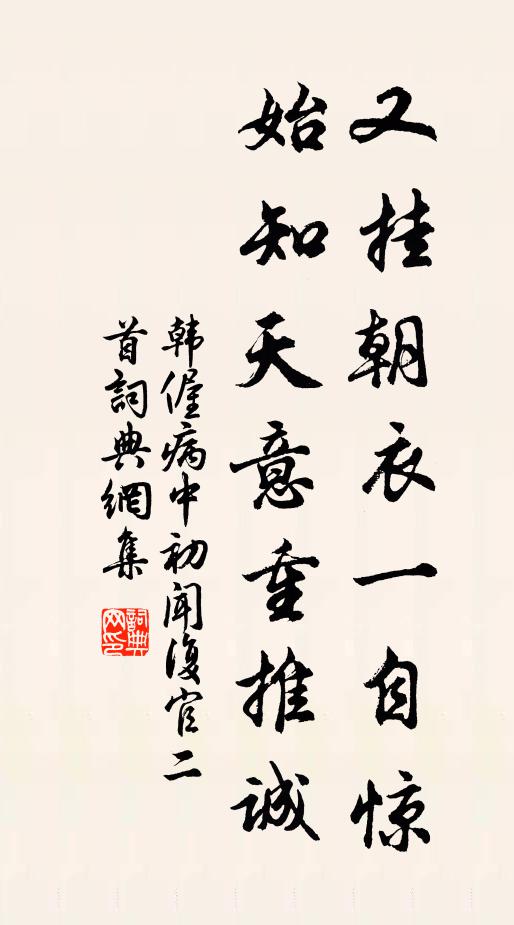 又挂朝衣一自惊
始知天意重推诚
韩偓病中初闻復官二
首詞典網集
詞典網印